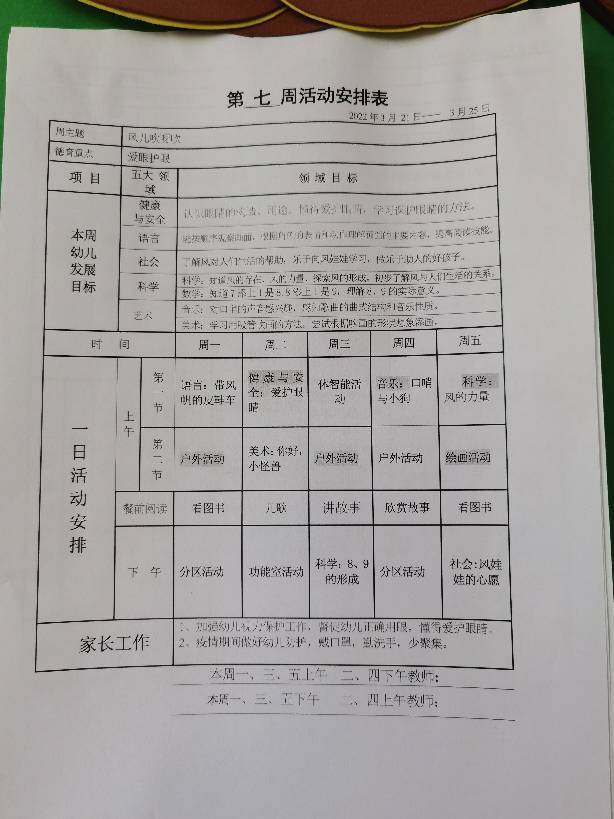 第 七 周活动安排表
2022年3月21日--- 3月25日
周主题 风儿吹呀吹
德育重点 爱眼护眼
项 目 五大 领域 领 域 目 标
本周幼儿发展目标
健康与安全 认识眼睛的构造、用途，懂得爱护眼睛，学习保护眼睛的方法。
语言
社会 了解风对人们生活的帮助，乐于向风娃娃学习，做乐于助人的好孩子。
科学 科学：知道风的存在、风的力量，探索风的形成，初步了解风与人们生活的关系。
数学：知道7添上1是8，8添上1是9，理解8、9的实际意义。
艺术 音乐：
美术：
时 间 周一 周二 周三 周四 周五
一日活动安排
上午
第一节 语言：带风帆的皮鞋车 健康与安全：爱护眼睛 体智能活动 音乐：口哨与小狗 科学：风的力量
第二节 户外活动 美术：你好，小怪兽 户外活动 户外活动 绘画活动
餐前阅读 看图书 儿歌 讲故事 欣赏故事 看图书
下 午 分区活动 功能室活动 科学：8、9的形成 分区活动 社会：风娃娃的心愿
家长工作
1、加强幼儿视力保护工作，督促幼儿正确用眼，懂得爱护眼睛。
2、疫情期间做好幼儿防护，戴口罩，勤洗手，少聚集。
本周一、三、五上午 二、四下午教师：
本周一、三、五下午 二、四上午教师：